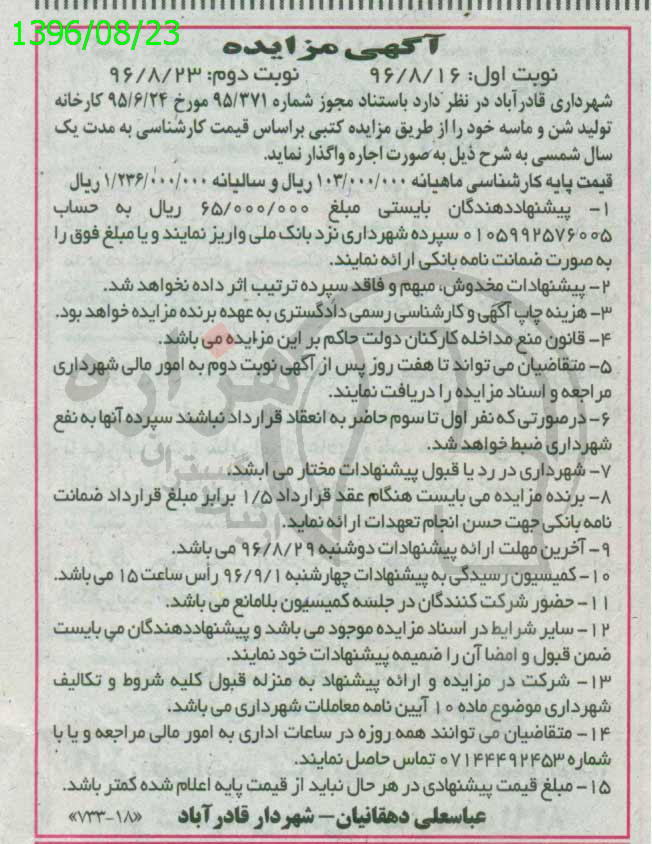 1396/08/23
آگهی مزایده
نوبت اول: ۹۶/۸/۱۶ نوبت دوم: ۹۶/۸/۲۳
شهرداری قادرآباد در نظر دارد باستناد مجوز شماره ۹۵/۳۷۱ مورخ ۹۵/۶/۲۴ کارخانه
تولید شن و ماسه خود را از طریق مزایده کتبی براساس قیمت کارشناسی به مدت یک
سال شمسی به شرح ذیل به صورت اجاره واگذار نماید.
قیمت پایه کارشناسی ماهیانه ۱۰۳/۰۰۰/۰۰۰ ریال و سالیانه ۱/۲۳۶/۰۰۰/۰۰۰ ریال
۱- پیشنهاددهندگان بایستی مبلغ ۶۵/۰۰۰/۰۰۰ ریال به حساب
۰۱۰۵۹۹۲۵۷۶۰۰۵ سپرده شهرداری نزد بانک ملی واریز نمایند و یا مبلغ فوق را
به صورت ضمانت نامه بانکی ارائه نمایند.
۲- پیشنهادات مخدوش، مبهم و فاقد سپرده ترتیب اثر داده نخواهد شد.
۳- هزینه چاپ آگهی و کارشناسی رسمی دادگستری به عهده برنده مزایده خواهد بود.
۴- قانون منع مداخله کارکنان دولت حاکم بر این مزایده می باشد.
۵- متقاضیان می تواند تا هفت روز پس از آگهی نوبت دوم به امور مالی شهرداری
مراجعه و اسناد مزایده را دریافت نمایند.
۶- در صورتی که نفر اول تا سوم حاضر به انعقاد قرارداد نباشند سپرده آنها به نفع
شهرداری ضبط خواهد شد.
۷- شهرداری در رد یا قبول پیشنهادات مختار می ابشد.
۸- برنده مزایده می بایست هنگام عقد قرارداد ۱/۵ برابر مبلغ قرارداد ضمانت
نامه بانکی جهت حسن انجام تعهدات ارائه نماید.
۹- آخرین مهلت ارائه پیشنهادات دوشنبه ۹۶/۸/۲۹ می باشد.
۱۰- کمیسیون رسیدگی به پیشنهادات چهارشنبه ۹۶/۹/۱ رأس ساعت ۱۵ می باشد.
۱۱- حضور شرکت کنندگان در جلسه کمیسیون بلامانع می باشد.
۱۲- سایر شرایط در اسناد مزایده موجود می باشد و پیشنهاددهندگان می بایست
ضمن قبول و امضا آن را ضمیمه پیشنهادات خود نمایند.
۱۳- شرکت در مزایده و ارائه پیشنهاد به منزله قبول کلیه شروط و تکالیف
شهرداری موضوع ماده ۱۰ آیین نامه معاملات شهرداری می باشد.
۱۴- متقاضیان می توانند همه روزه در ساعات اداری به امور مالی مراجعه و یا با
شماره ۰۷۱۴۴۴۹۲۴۵۳ تماس حاصل نمایند.
۱۵- مبلغ قیمت پیشنهادی در هر حال نباید از قیمت پایه اعلام شده کمتر باشد.
عباسعلی دهقانیان- شهردار قادرآباد «۷۳۳-۱۸»
هزاره